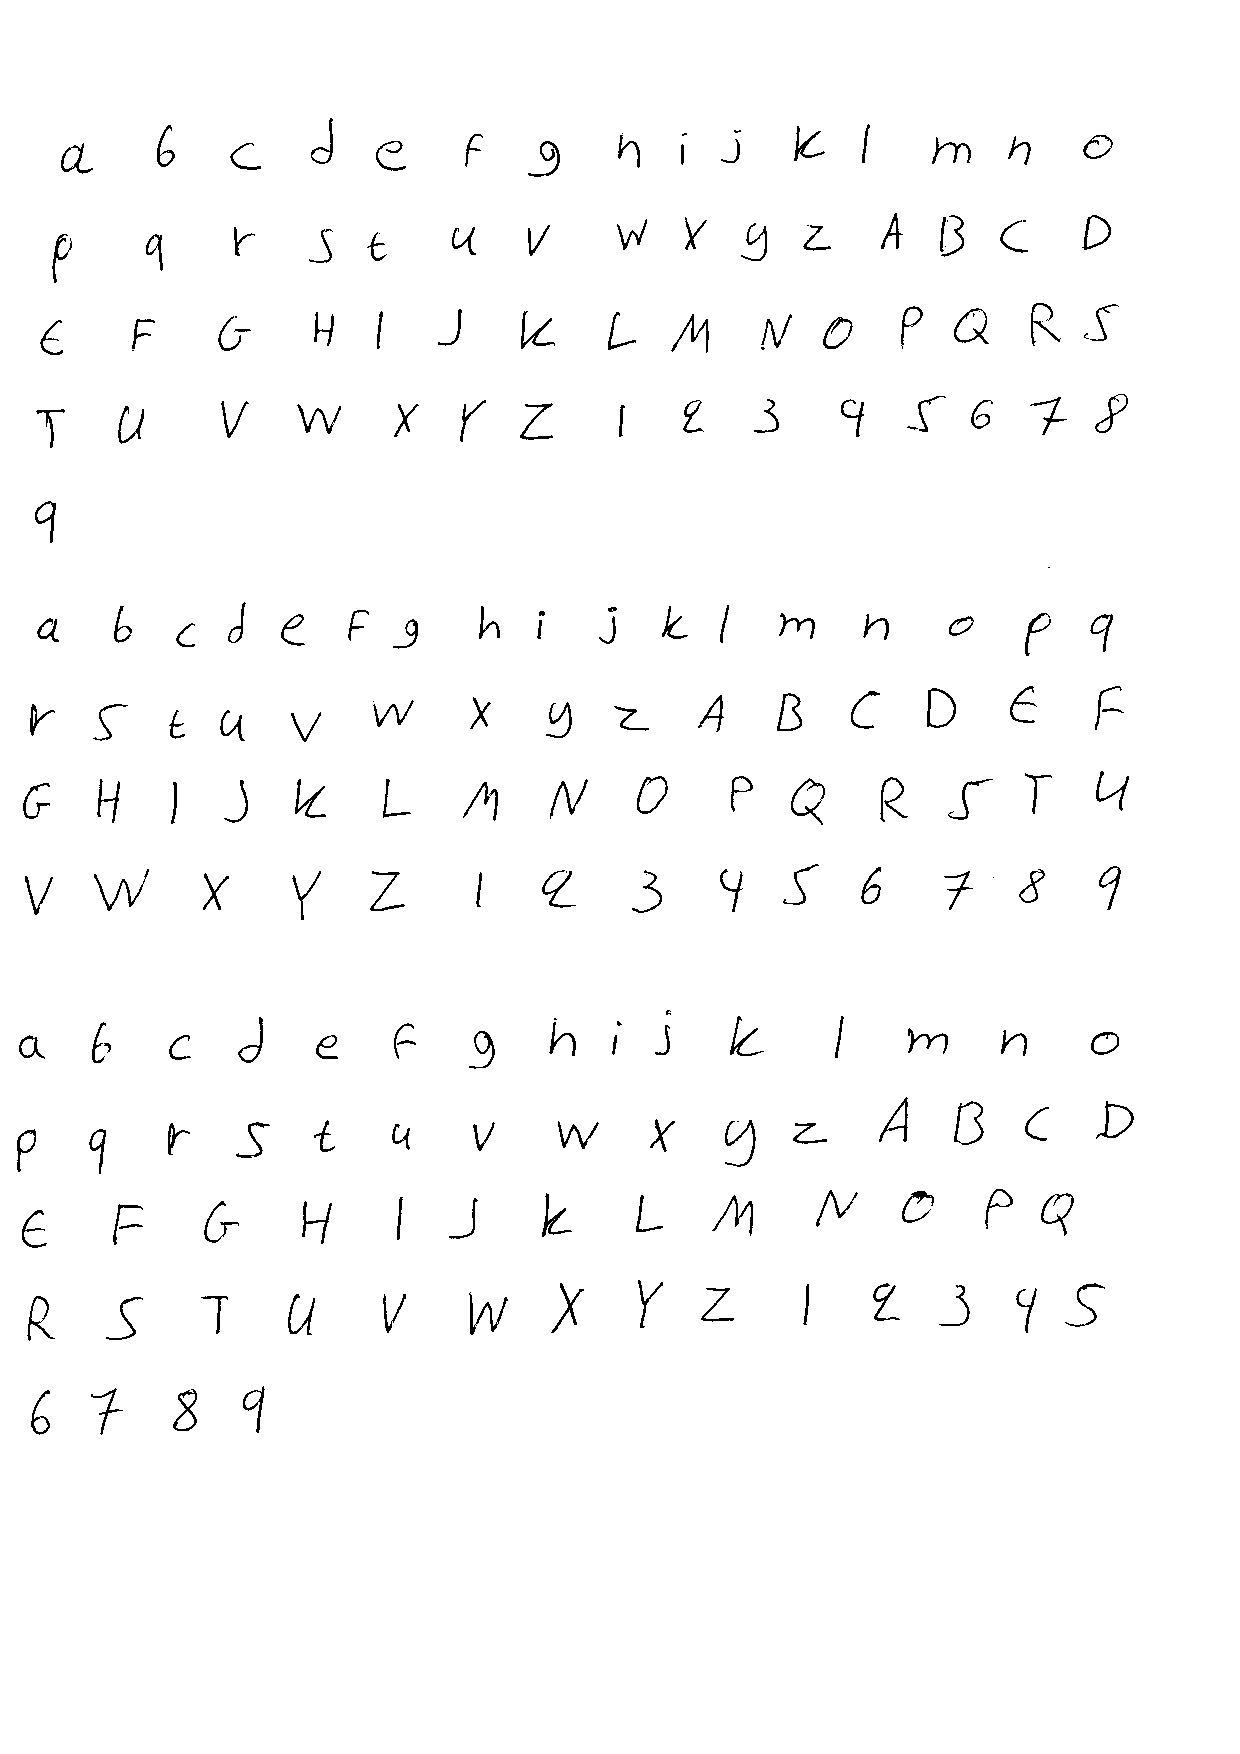 a b c d e f g h i j k l m n o
p q r s t u v w x y z A B C D
E F G H I J K L M N O P Q R S
T U V W X Y Z 1 2 3 4 5 6 7 8
9
a b c d e f g h i j k l m n o p q
r s t u v w x y z A B C D E F
G H I J K L M N O P Q R S T U
V W X Y Z 1 2 3 4 5 6 7 8 9
a b c d e f g h i j k l m n o
p q r s t u v w x y z A B C D
E F G H I J K L M N O P Q
R S T U V W X Y Z 1 2 3 4 5
6 7 8 9